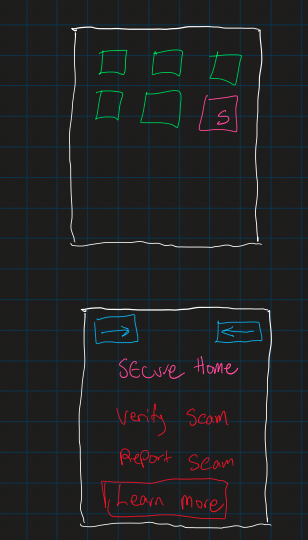 S
SECure Home
Verify Scam
Report Scam
Learn more